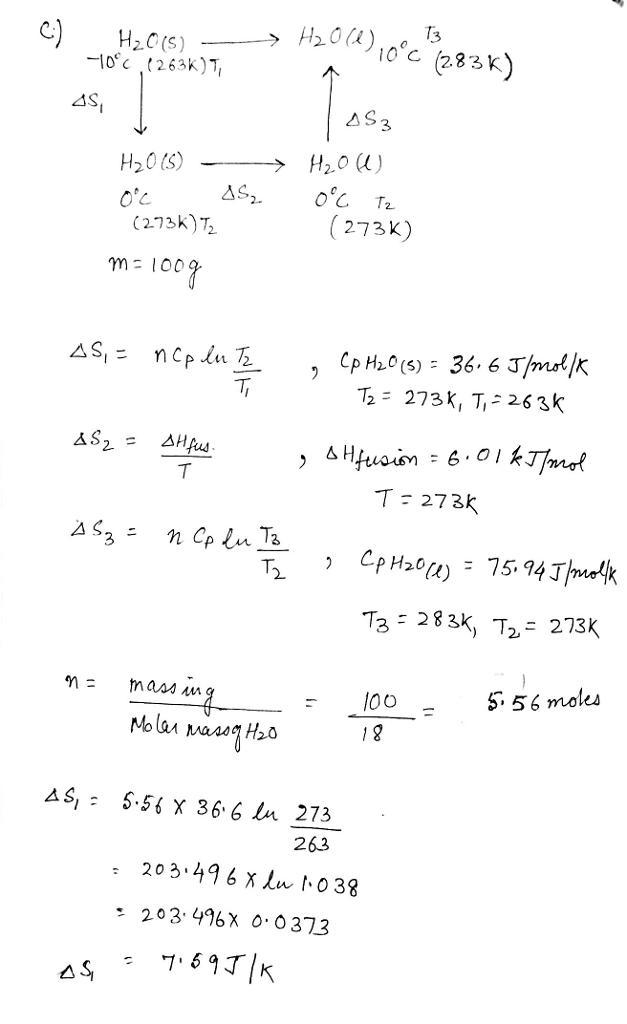 C.) H2O(s) ⟶ H2O(l), 10°C T3 (283K)
-10°C, (263K) T1
ΔS1
ΔS3
H2O(s) ⟶ H2O(l)
0°C ΔS2 0°C T2
(273K) T2 (273K)
m = 100g
ΔS1 = nCp ln T2/T1 , Cp H2O(s) = 36.6 J/mol/K
T2 = 273K, T1 = 263K
ΔS2 = ΔHfus./T , ΔHfusion = 6.01 kJ/mol
T = 273K
ΔS3 = n Cp ln T3/T2 , Cp H2O(l) = 75.94 J/mol/K
T3 = 283K, T2 = 273K
n = mass in g/Molar mass of H2O = 100/18 = 5.56 moles
ΔS1 = 5.56 x 36.6 ln 273/263
= 203.496 x ln 1.038
= 203.496 x 0.0373
ΔS1 = 7.59 J/K